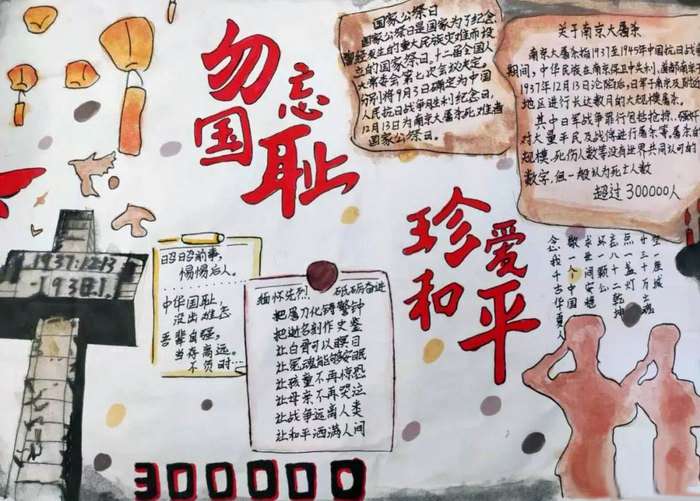 勿忘
国耻
珍爱
和平
国家公祭日
国家公祭日是国家为了纪念
曾经发生的重大民族灾难而设
立的国家祭日。十二届全国人
大常委会第七次会议决定。
分别将9月3日确定为中国
人民抗日战争胜利纪念日。
12月13日为南京大屠杀死难者
国家公祭日。
关于南京大屠杀
南京大屠杀指1937至1945年中国抗日战争
期间，中华民族在南京保卫中失利，首都南京于
1937年12月13日沦陷后，日军于南京及附近
地区进行长达数月的大规模屠杀。
其中日军战争罪行包括抢掠、强奸
对大量平民及战俘进行屠杀等。屠杀的
规模、死伤人数等没有世界共同认可的
数字，但一般认为死亡人数
超过300000人
1937.12.13
-1938.1
昭昭前事，
惕惕后人。
中华国耻，
没出难忘
吾辈自强，
当存高远。
不负时……
缅怀先烈，砥砺奋进
把屠刀化铸警钟
把逝名刻作史鉴
让白骨可以瞑目
让冤魂能够安眠
让孩童不再惊恐
让母亲不再哭泣
让战争远离人类
让和平洒满人间
一座城
三十万亡魂
点一盏灯
言八一乾坤
环一颗心
求世间安稳
敬一人中国
念我千古华夏人
300000